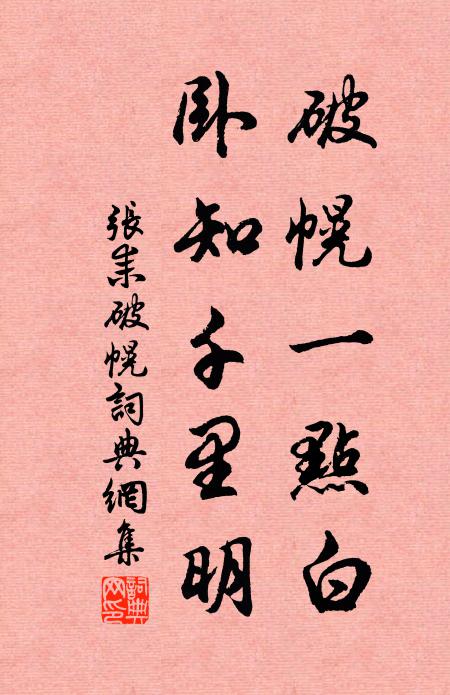 破幌一點白
臥知千里明
張耒破幌詞典網集
詞典網印